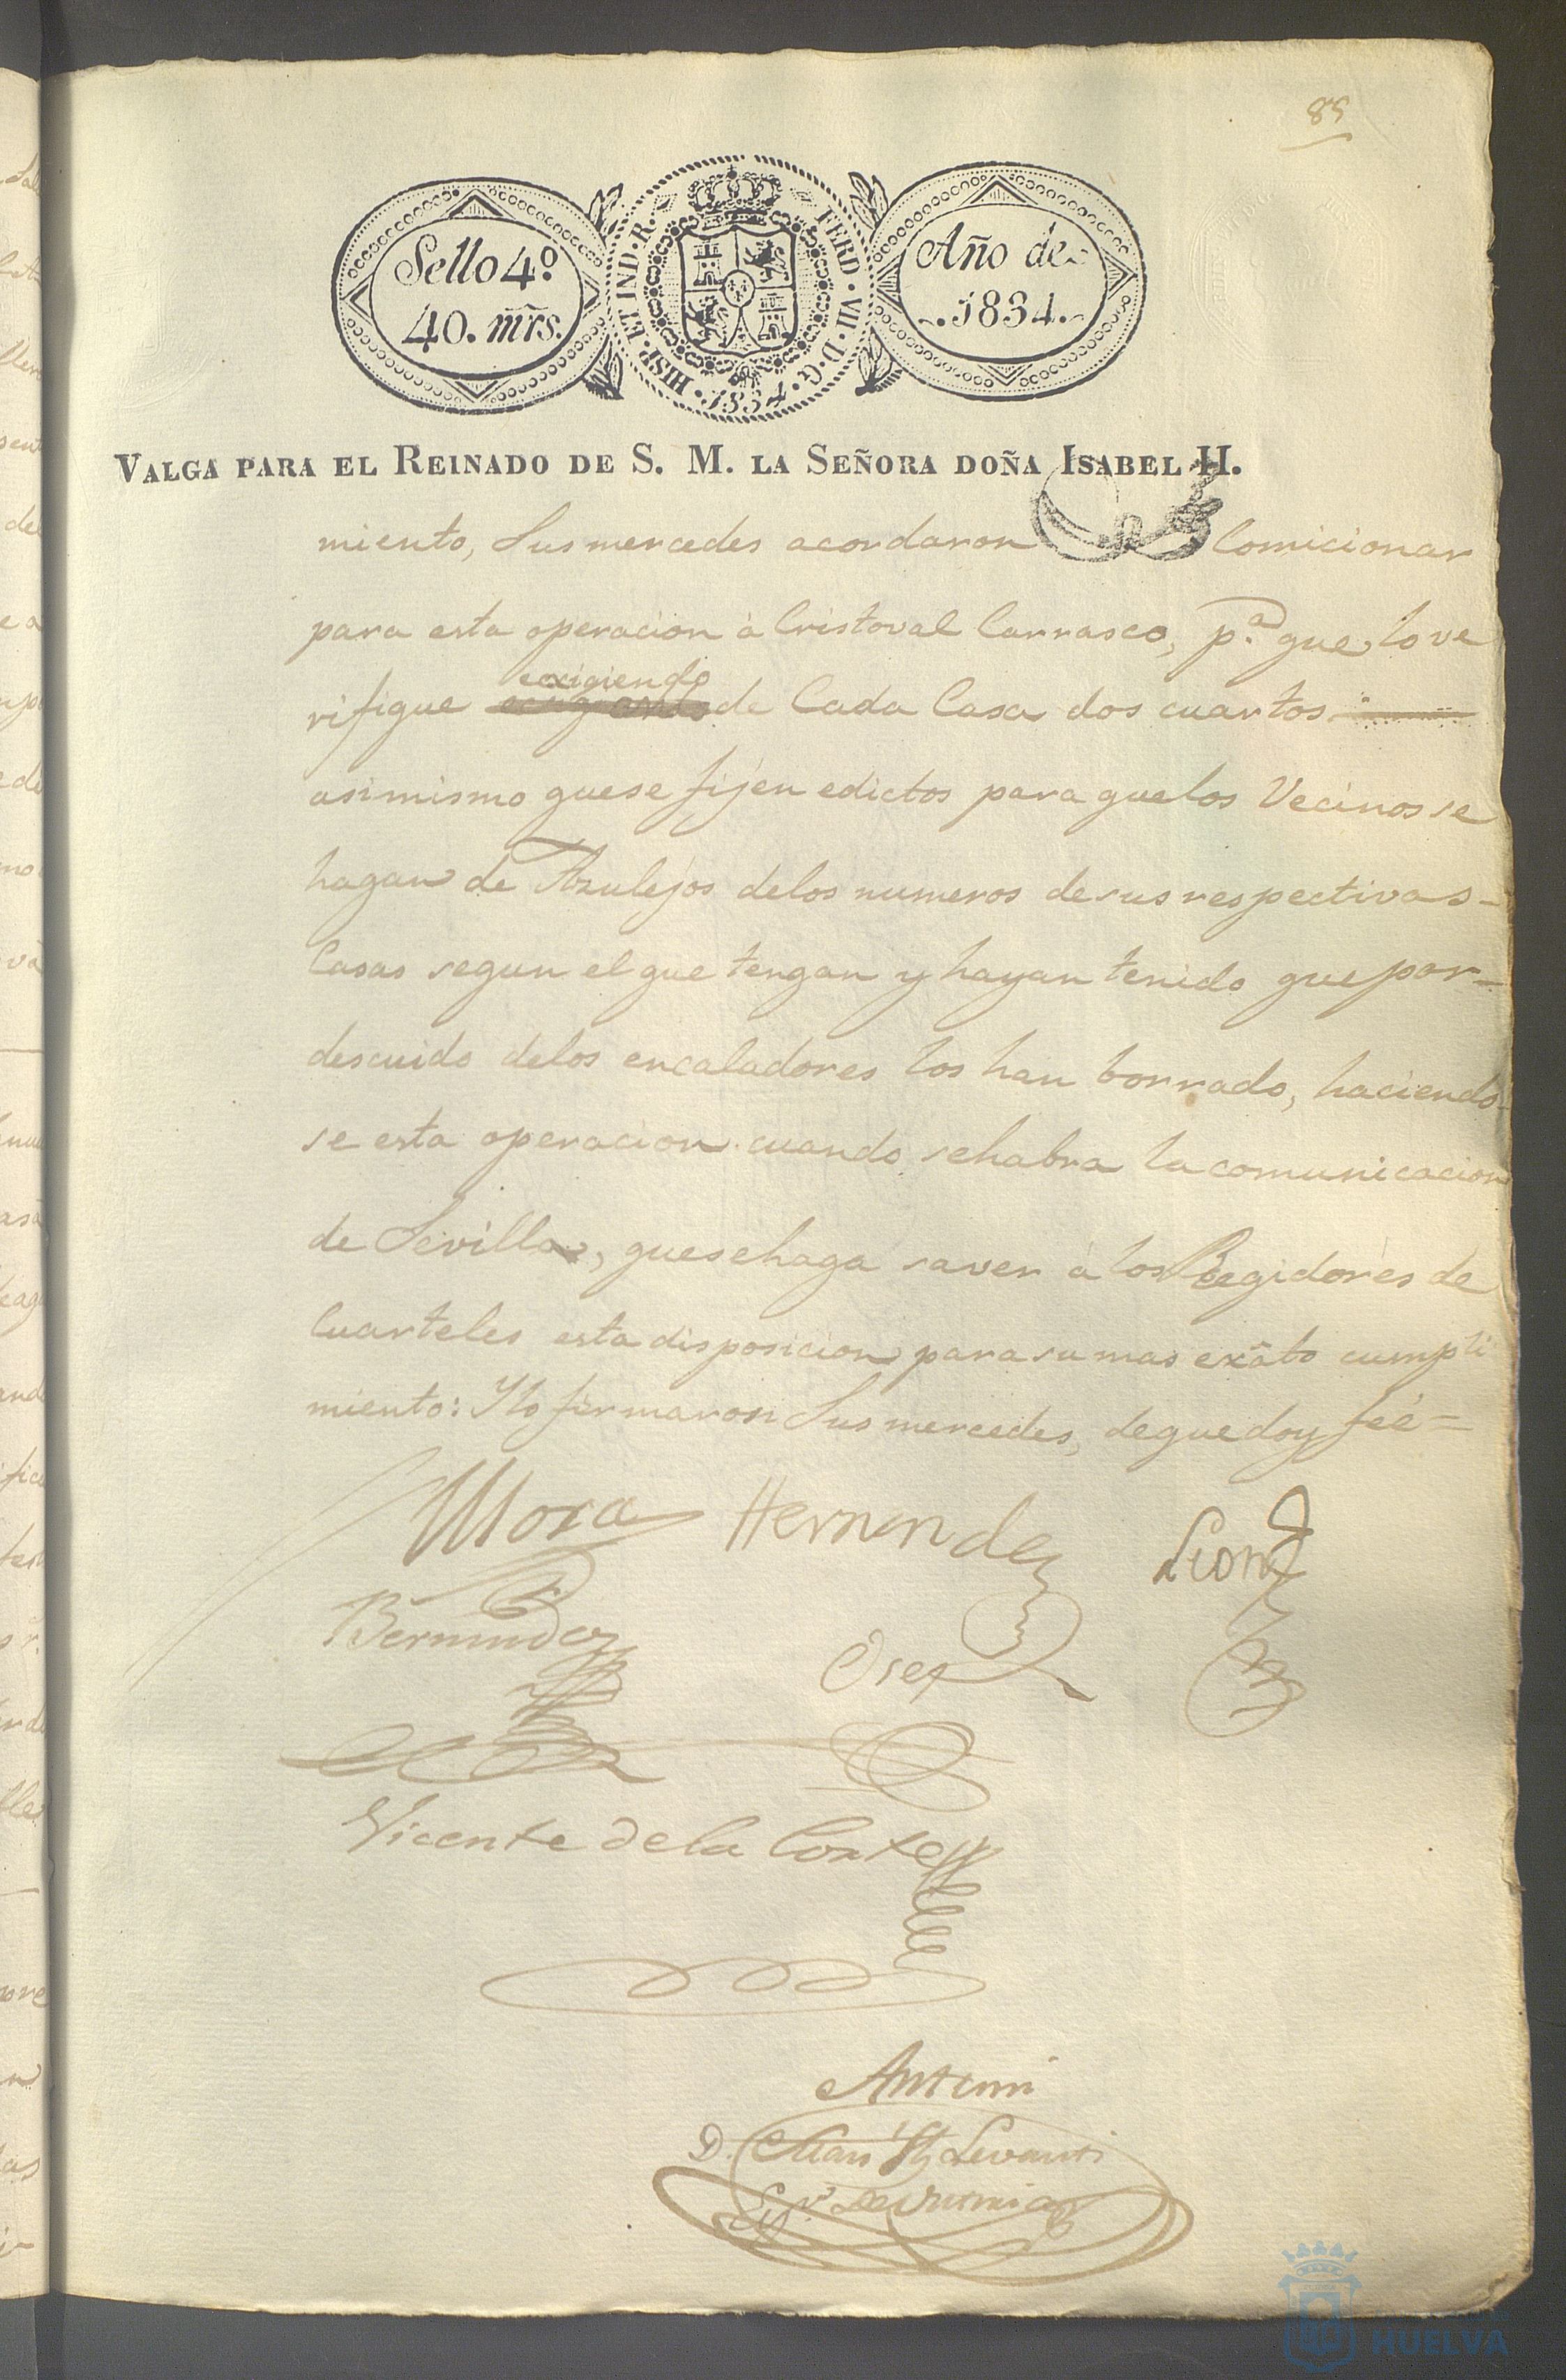 85
Sello 4.º
40. mrs.
HISP. ET IND. R.
FERD. VII. D. G.
1834.
Año de
1834.
VALGA PARA EL REINADO DE S. M. LA SEÑORA DOÑA ISABEL II.
miento, Sus mercedes acordaron Comicionar
para esta operacion à Cristoval Carrasco, p.ª que lo ve
rifique exigiendo de Cada Casa dos cuartos
asimismo que se fijen edictos para que los Vecinos se
hagan de Azulejos de los numeros de sus respectivas
Casas segun el que tengan y hayan tenido que por
descuido de los encaladores los han borrado, haciendo
se esta operacion cuando se habra la comunicacion
de Sevilla, que se haga saver à los Regidores de
Cuarteles esta disposicion para su mas exãto cumpli
miento: Y lo firmaron Sus mercedes, de que doy feé =
Mora Hernandez Leon
Bermudez
Vicente de la Corte
Ante mi
D.
HUELVA